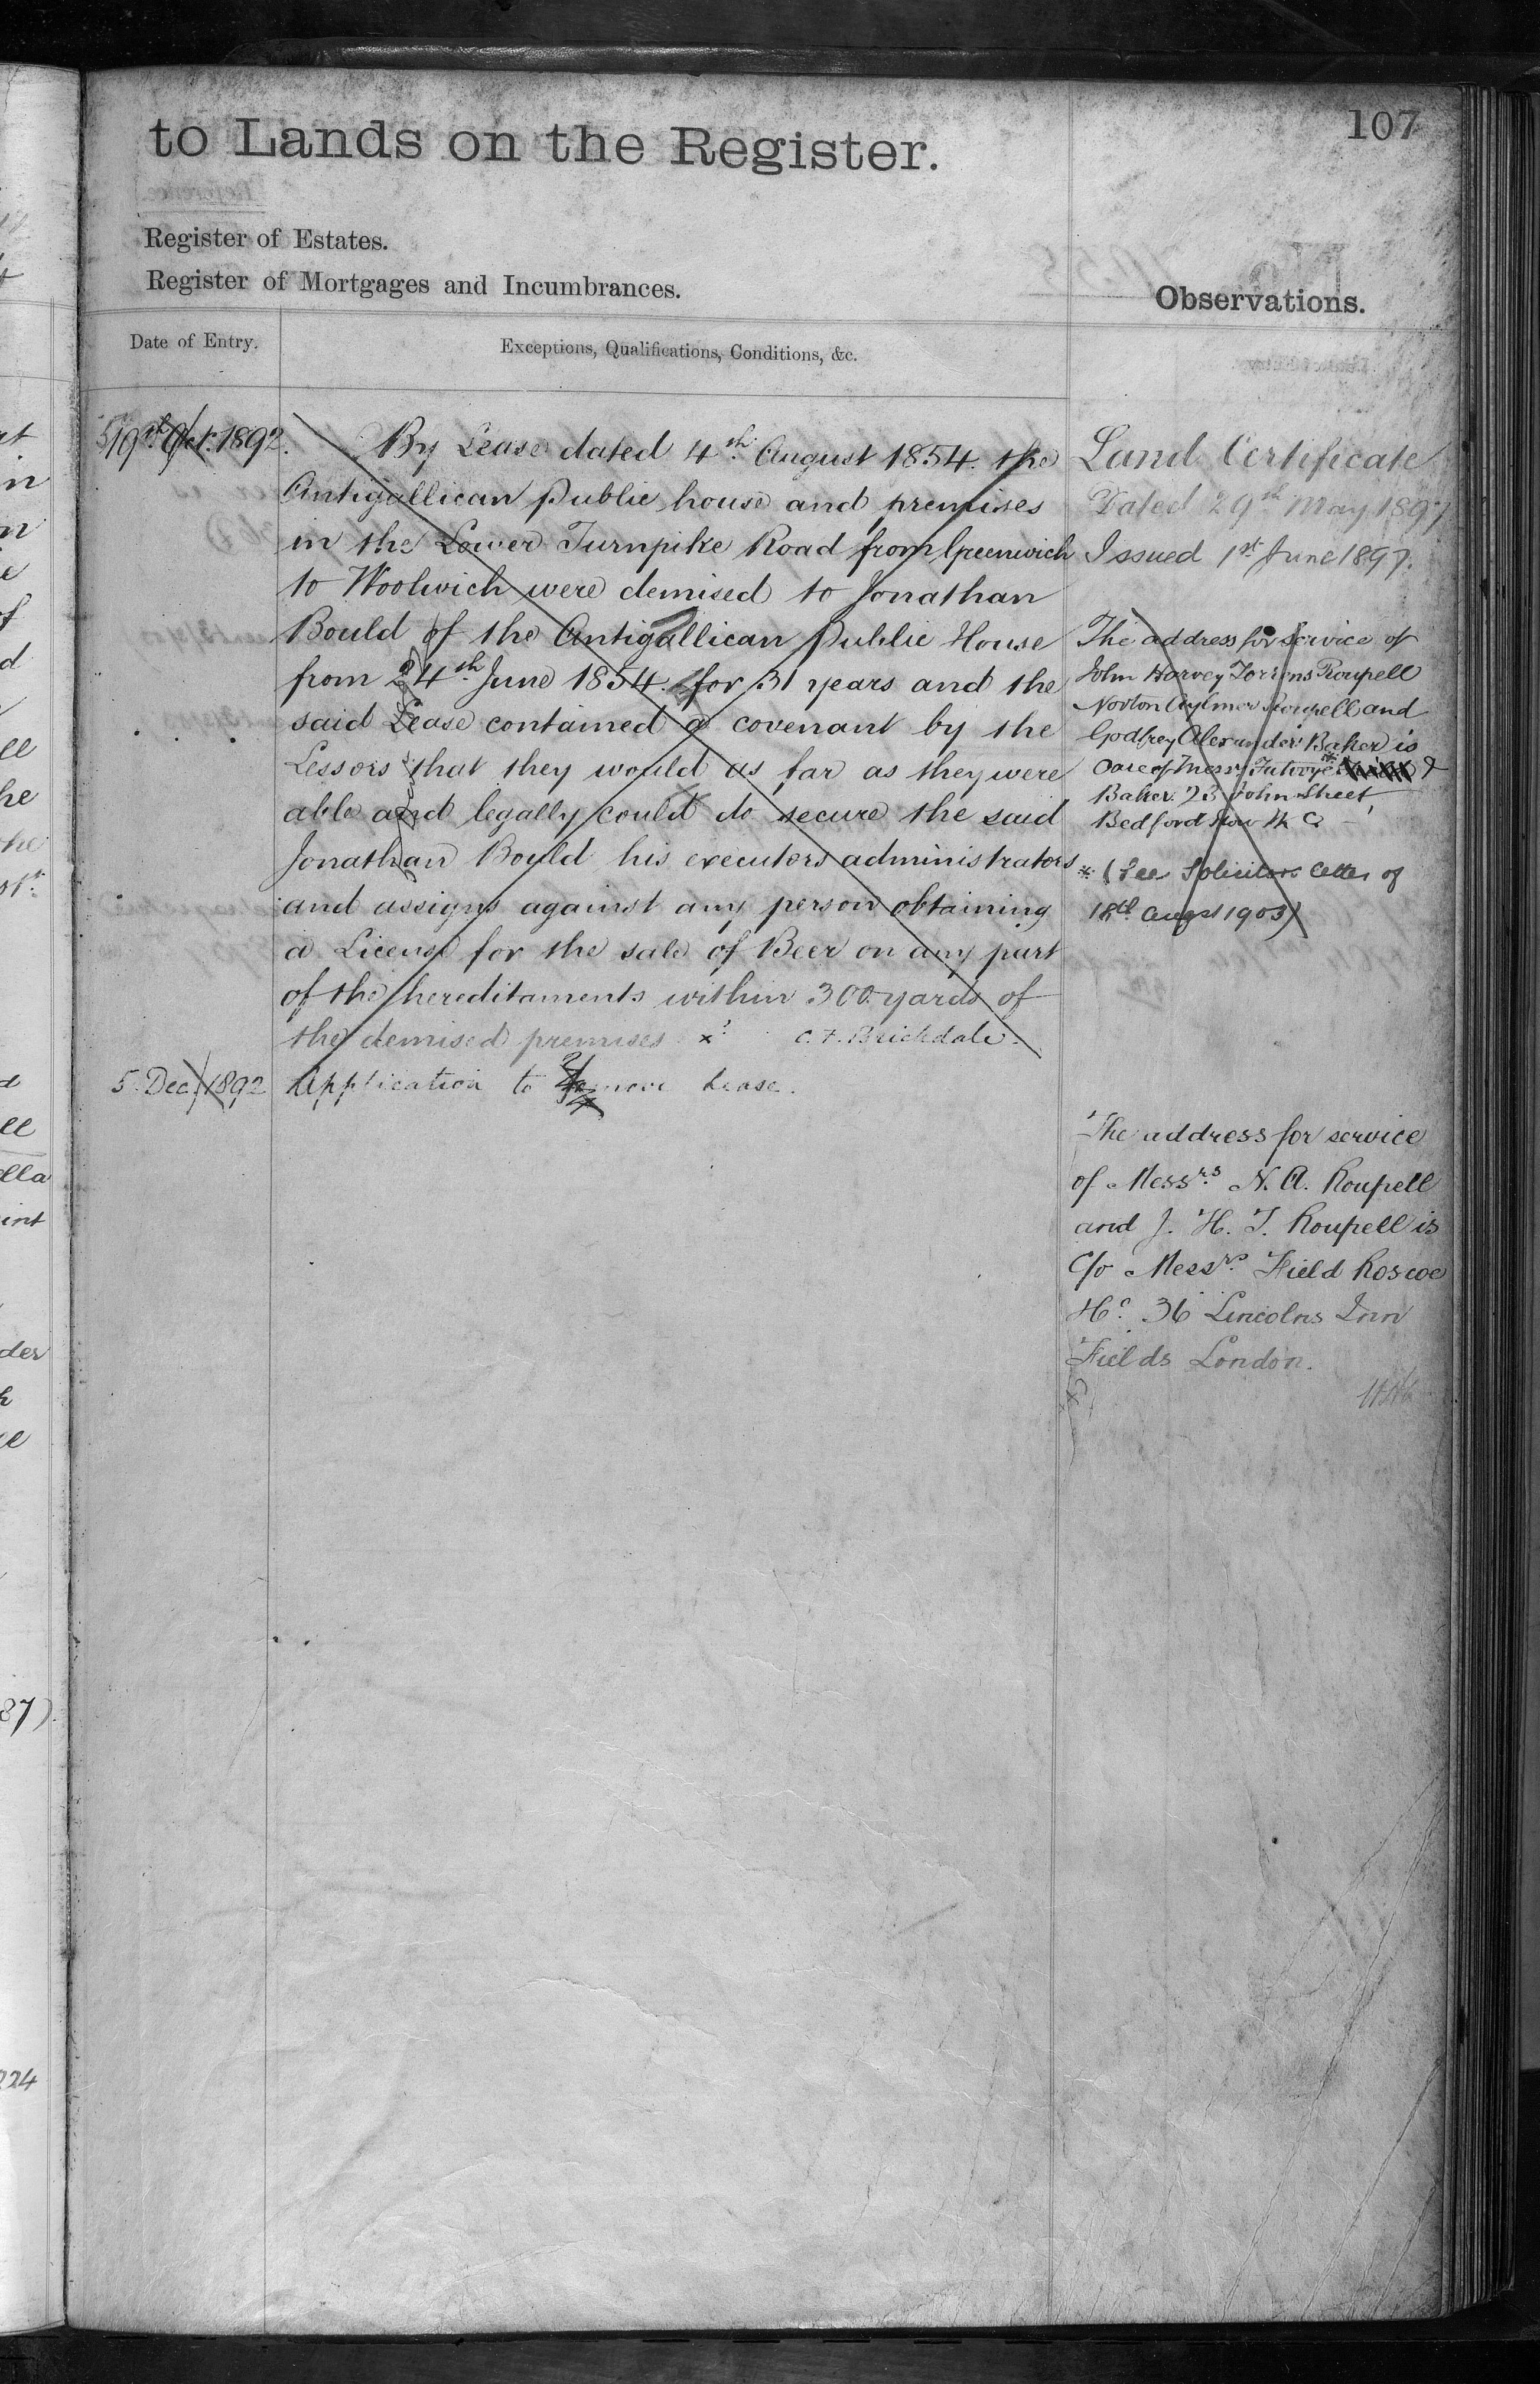 107
to Lands on the Register.
Register of Estates.
Register of Mortgages and Incumbrances.
Observations.
Date of Entry.
Exceptions, Qualifications, Conditions, &c.
19th Oct. 1892.
By Lease dated 4th August 1854 the
Antigallican Public house and premises
in the Lower Turnpike Road from Greenwich
to Woolwich were demised to Jonathan
Bould of the Antigallican Public House
from 24th June 1854 for 31 years and the
said Lease contained a covenant by the
Lessors that they would as far as they were
able and legally could do secure the said
Jonathan Bould his executors administrators
and assigns against any person obtaining
a License for the sale of Beer on any part
of the hereditaments within 300 yards of
the demised premises C. F. Brickdale.
5 Dec. 1892 Application to remove Lease.
Land Certificate
Dated 29th May 1897
Issued 1st June 1897.
The address for service of
John Harvey Torrens Roupell
Norton Aylmer Roupell and
Godfrey Alexander Baker is
Care of Messrs Futvoye &
Baker 23 John Street
Bedford Row W C
* (See Solicitors letter of
18th Augst 1903)
The address for service
of Messrs. N. A. Roupell
and J. H. T. Roupell is
C/o Messrs. Field Roscoe
&c. 36 Lincolns Inn
Fields London.